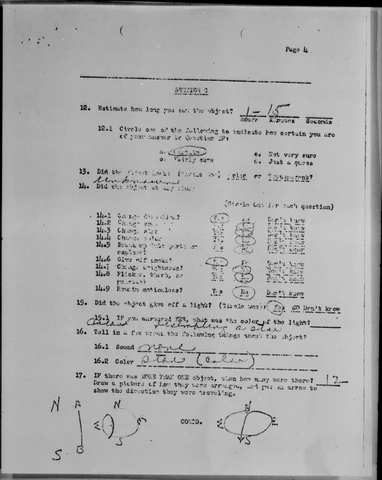 Page 4
SECTION C
12. Estimate how long you saw the object? 1 - 15
Hours Minutes Seconds
12.1 Circle one of the following to indicate how certain you are
of your answer to Question 12:
a. Certain c. Not very sure
b. Fairly sure d. Just a guess
13. Did the object look: (Circle one) Solid or Transparent?
Unknown
14. Did the object at any time:
(Circle One for each question)
14.1 Change direction? Yes No Don't Know
14.2 Change Yes No Don't Know
14.3 Change size Yes No Don't Know
14.4 Change color Yes No Don't Know
14.5 Break up into parts or Yes No Don't Know
explode?
14.6 Give off smoke? Yes No Don't Know
14.7 Change brightness? Yes No Don't Know
14.8 Flicker, throb, or Yes No Don't Know
pulsate?
14.9 Remain motionless? Yes No Don't Know
15. Did the object give off a light? (Circle One): Yes NO Don't know
15.1 IF you answered YES, what was the color of the light?
a star
16. Tell in a few words the following things about the object?
16.1 Sound none
16.2 Color star (color)
17. IF there was MORE THAN ONE object, then how many were there? 12
Draw a picture of how they were arranged, and put an arrow to
show the direction they were traveling.
N A N N
CONTD.
S B S S